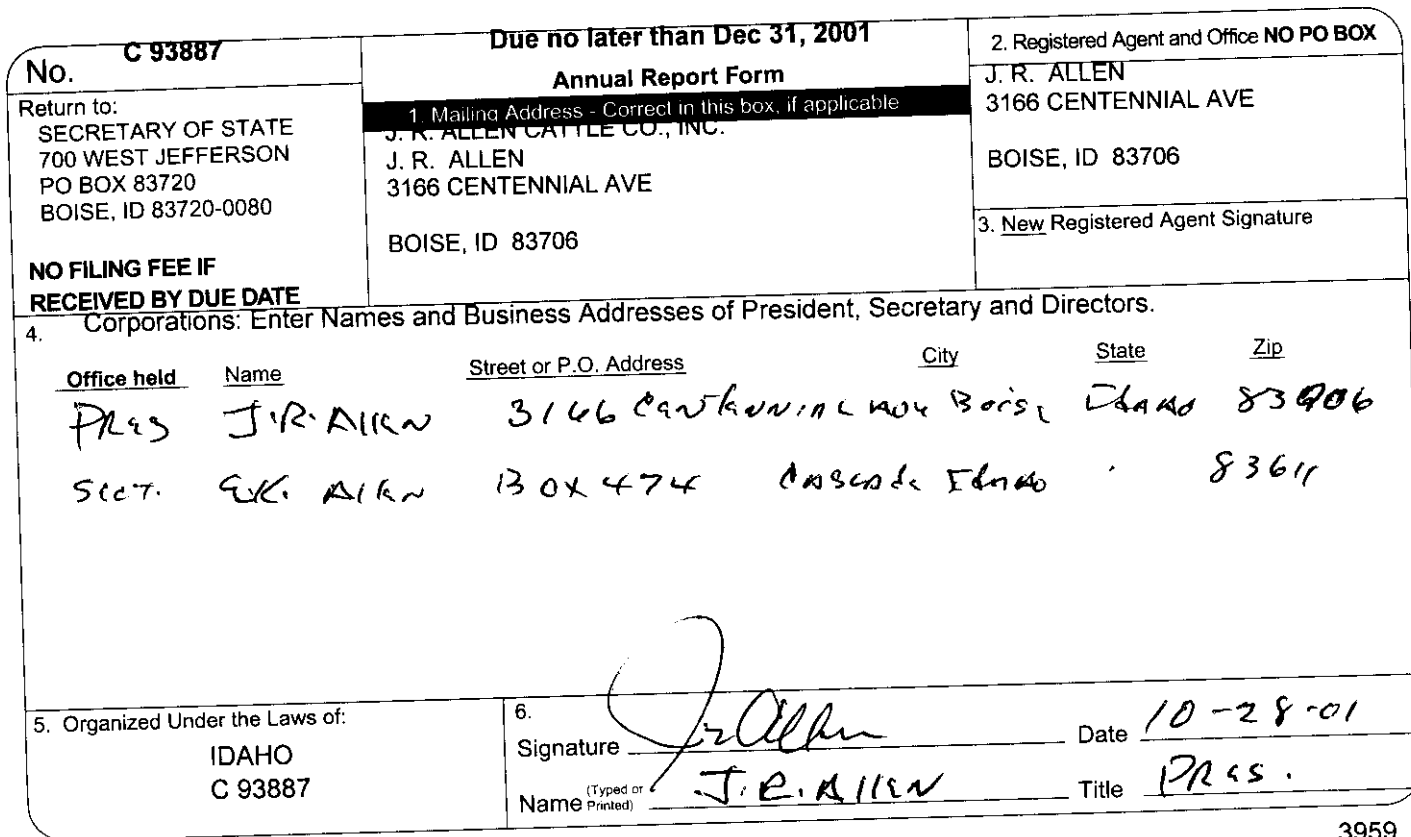 No. C 93887
Return to:
SECRETARY OF STATE
700 WEST JEFFERSON
PO BOX 83720
BOISE, ID 83720-0080
NO FILING FEE IF
RECEIVED BY DUE DATE
Due no later than Dec 31, 2001
Annual Report Form
1. Mailing Address - Correct in this box, if applicable
J. R. ALLEN CATTLE CO., INC.
J. R. ALLEN
3166 CENTENNIAL AVE
BOISE, ID 83706
2. Registered Agent and Office NO PO BOX
J. R. ALLEN
3166 CENTENNIAL AVE
BOISE, ID 83706
3. New Registered Agent Signature
4. Corporations: Enter Names and Business Addresses of President, Secretary and Directors.
Office held Name Street or P.O. Address City State Zip
Pres J.R. Allen 3166 Centennial Ave Boise Idaho 83706
Sect. E.K. Allen Box 474 Cascade Idaho 83611
5. Organized Under the Laws of:
IDAHO
C 93887
6.
Signature Jr Allen Date 10-28-01
Name (Typed or Printed) J.R. Allen Title Pres.
3959